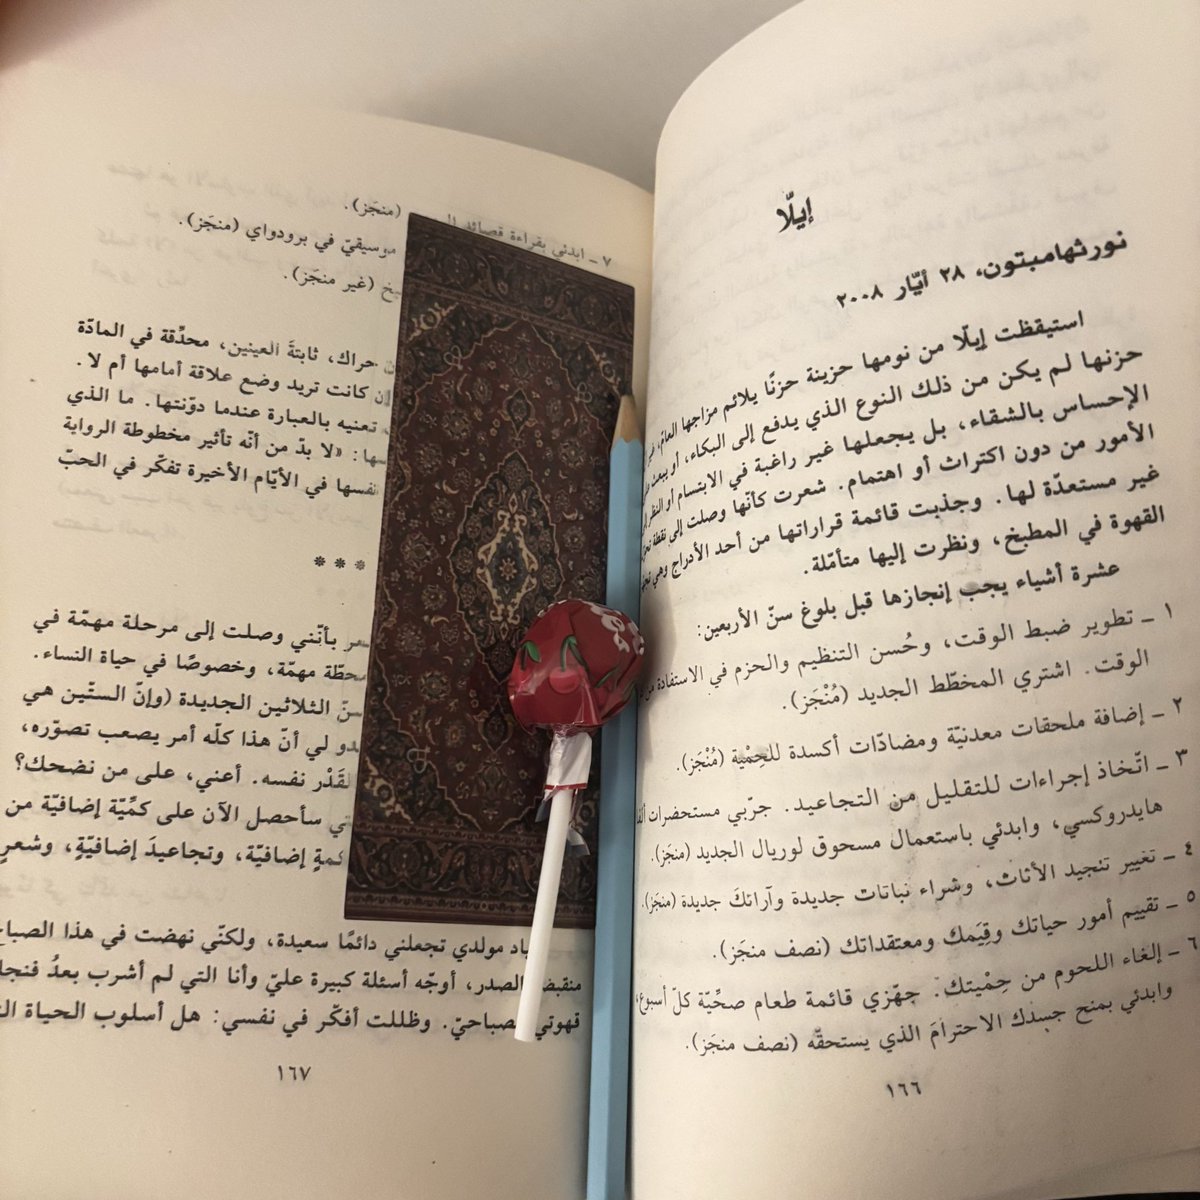 إيلّا
نورثهامبتون، ٢٨ أيّار ٢٠٠٨
استيقظت إيلّا من نومها حزينة حزنًا يلائم مزاجها العامّ، غير
حزنها لم يكن من ذلك النوع الذي يدفع إلى البكاء، أو يبعث
الإحساس بالشقاء، بل يجعلها غير راغبة في الابتسام أو النظر
الأمور من دون اكتراث أو اهتمام. شعرت كأنّها وصلت إلى نقطة
غير مستعدّة لها. وجذبت قائمة قراراتها من أحد الأدراج وهي
القهوة في المطبخ، ونظرت إليها متأمّلة.
عشرة أشياء يجب إنجازها قبل بلوغ سنّ الأربعين:
١ ــ تطوير ضبط الوقت، وحُسن التنظيم والحزم في الاستفادة من
الوقت. اشتري المخطّط الجديد (مُنْجَز).
٢ ــ إضافة ملحقات معدنيّة ومضادّات أكسدة للحِمْية (مُنْجَز).
٣ ــ اتّخاذ إجراءات للتقليل من التجاعيد. جرّبي مستحضرات
هايدروكسي، وابدئي باستعمال مسحوق لوريال الجديد (منجَز).
٤ ــ تغيير تنجيد الأثاث، وشراء نباتات جديدة وآرائكَ جديدة (منجَز).
٥ ــ تقييم أمور حياتك وقِيَمك ومعتقداتك (نصف منجَز).
٦ ــ إلغاء اللحوم من حِمْيتك. جهّزي قائمة طعام صحّيّة كلّ أسبوع،
وابدئي بمنح جسدك الاحترامَ الذي يستحقّه (نصف منجَز).
١٦٦
٧ ــ ابدئي بقراءة قصائد (منجَز).
موسيقيّ في برودواي (منجَز).
(غير منجَز).
حراك، ثابتةَ العينين، محدِّقة في المادّة
كانت تريد وضع علاقة أمامها أم لا.
تعنيه بالعبارة عندما دوّنتها. ما الذي
«لا بدّ من أنّه تأثير مخطوطة الرواية
نفسها في الأيّام الأخيرة تفكّر في الحبّ
* * *
بأنّني وصلت إلى مرحلة مهمّة في
محطّة مهمّة، وخصوصًا في حياة النساء.
سنّ الثلاثين الجديدة (وإنّ الستّين هي
لي أنّ هذا كلّه أمر يصعب تصوّره،
القَدْر نفسه. أعني، على من نضحك؟
سأحصل الآن على كمّيّة إضافيّة من
إضافيّة، وتجاعيدَ إضافيّةٍ، وشعرٍ
مولدي تجعلني دائمًا سعيدة، ولكنّي نهضت في هذا
الصدر، أوجّه أسئلة كبيرة عليّ وأنا التي لم أشرب بعدُ
قهوتي وظللت أفكّر في نفسي: هل أسلوب الحياة
١٦٧